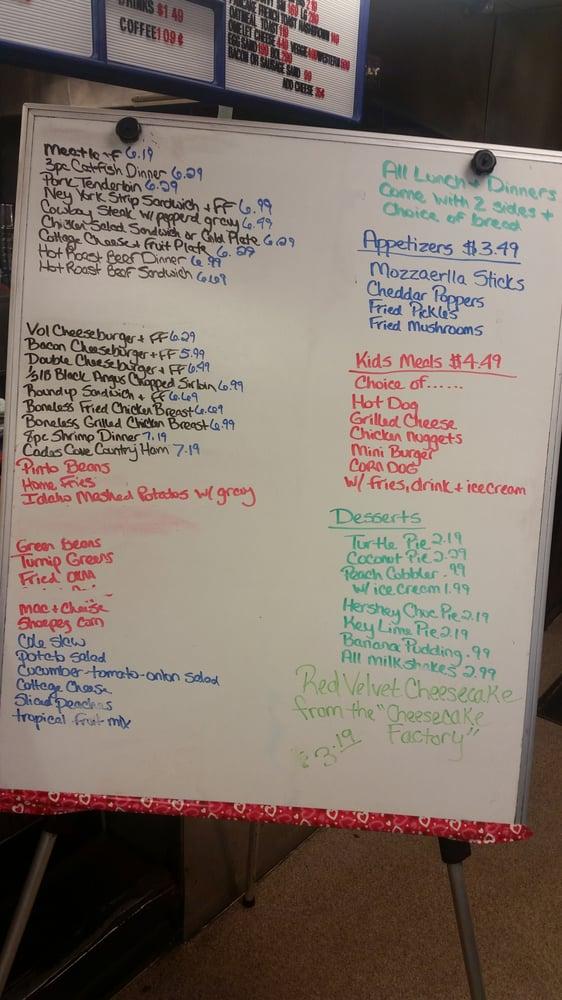 DRINKS $1 49
COFFEE 109¢
ADD CHEESE 35¢
BACON OR SAUSAGE SAND
Meatlo f 6.19
3pc Catfish Dinner 6.29
Pork Tenderloin 6.29
New York Strip Sandwich + FF 6.99
Cowboy Steak w/pepperd gravy 6.49
Chicken Salad Sandwich or Cold Plate 6.29
Cottage Cheese + Fruit Plate 6.29
Hot Roast Beef Dinner 6.99
Hot Roast Beef Sandwich 6.69
Vol Cheeseburger + FF 6.29
Bacon Cheeseburger + FF 5.99
Double Cheeseburger + FF 6.49
1/2 lb Black Angus Chopped Sirloin 6.99
Roundup Sandwich + FF 6.69
Boneless Fried Chicken Breast 6.69
Boneless Grilled Chicken Breast 6.99
8pc Shrimp Dinner 7.19
Cades Cove Country Ham 7.19
Pinto Beans
Home Fries
Idaho Mashed Potatoes w/ gravy
Green Beans
Turnip Greens
Fried Okra
Mac + Cheese
Shoepeg Corn
Cole Slaw
Potato Salad
Cucumber-tomato-onion Salad
Cottage Cheese
Sliced Peaches
tropical fruit mix
All Lunch + Dinners
Come with 2 sides +
Choice of bread
Appetizers $3.49
Mozzaerlla Sticks
Cheddar Poppers
Fried Pickles
Fried Mushrooms
Kids Meals $4.49
Choice of......
Hot Dog
Grilled Cheese
Chicken Nuggets
Mini Burger
CORN DOG
w/ fries, drink + ice cream
Desserts
Turtle Pie 2.19
Coconut Pie 2.29
Peach Cobbler .99
w/ ice cream 1.99
Hershey Choc Pie 2.19
Key Lime Pie 2.19
Banana Pudding .99
All milkshakes 2.99
Red Velvet Cheesecake
from the "Cheesecake
Factory"
$3.19